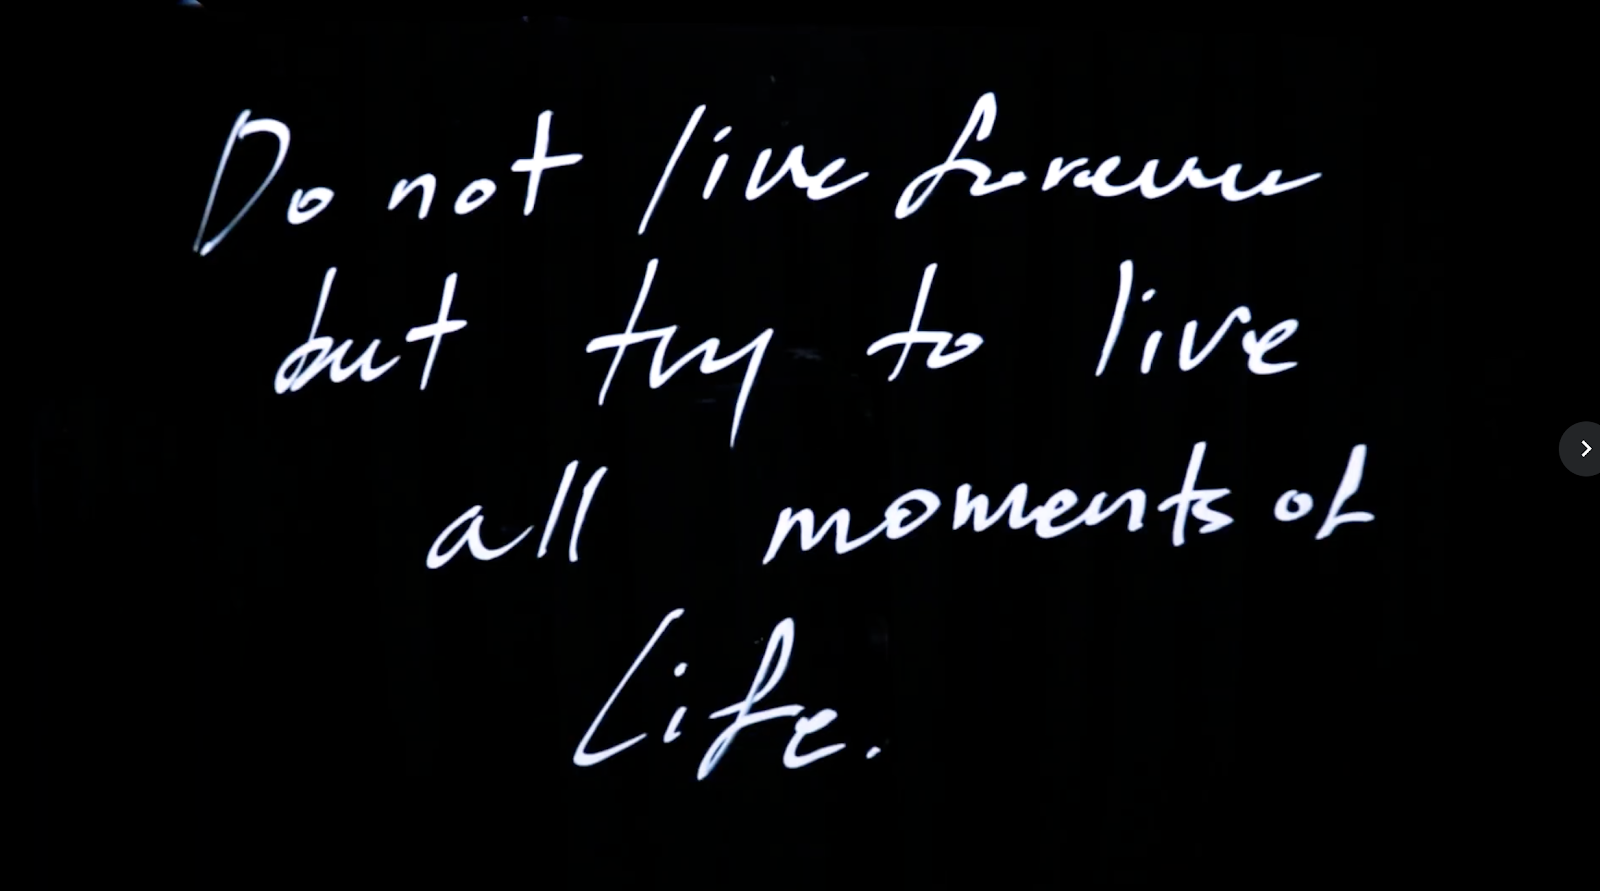 Do not live forever
but try to live
all moments of
Life.